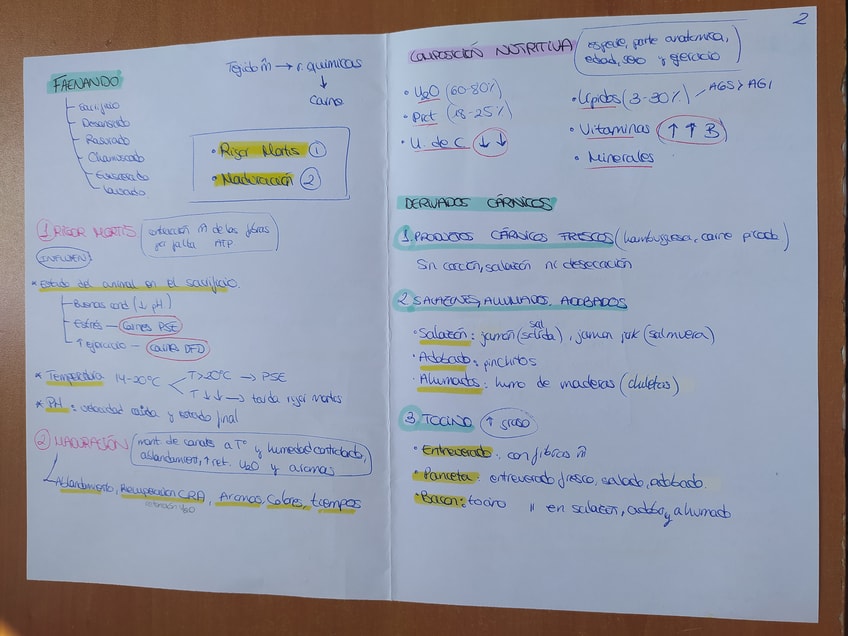 FAENANDO
Sacrificio
Desangrado
Rasurado
Chamuscado
Eviscerado
Lavado
Tejido m̃ → r. químicas
↓
Carne
• Rigor Mortis ①
• Maduración ②
① RIGOR MORTIS
contracción m̃ de las fibras
por falta ATP
INFLUYEN
* Estado del animal en el sacrificio.
Buenas cond (↓ pH)
Estrés — Carnes PSE
↑ ejercicio — carnes DFD
* Temperatura 14-20ºC
T>20ºC → PSE
T ↓↓ → tarda rigor mortis
* PH: velocidad caída y estado final
② MADURACIÓN
mant de canales a Tº y humedad controlada,
ablandamient, ↑ ret. H2O y aromas
Ablandamiento, Recuperación CRA, Aromas, Colores, tiempos
retención H2O
2
COMPOSICIÓN NUTRITIVA
especie, parte anatómica,
edad, sexo y ejercicio
• H2O (60-80%)
• Prot (18-25%)
• H. de C ↓↓
• Lípidos (3-30%) — AGS > AGI
• Vitaminas ↑↑ B
• Minerales
DERIVADOS CÁRNICOS
1. PRODUCTOS CÁRNICOS FRESCOS (hamburguesa, carne picada)
Sin cocción, salazón ni desecación
2 SALAZONES, AHUMADOS, ADOBADOS
sal
• Salazón: jamón (sólida), jamon york (salmuera)
• Adobado: pinchitos
• Ahumados: humo de maderas (chuletas)
3 TOCINO ↑ graso
• Entreverado: con fibras m̃
• Panceta: entreverado fresco, salado, adobado.
• Bacon: tocino " en salazon, adobo y ahumado